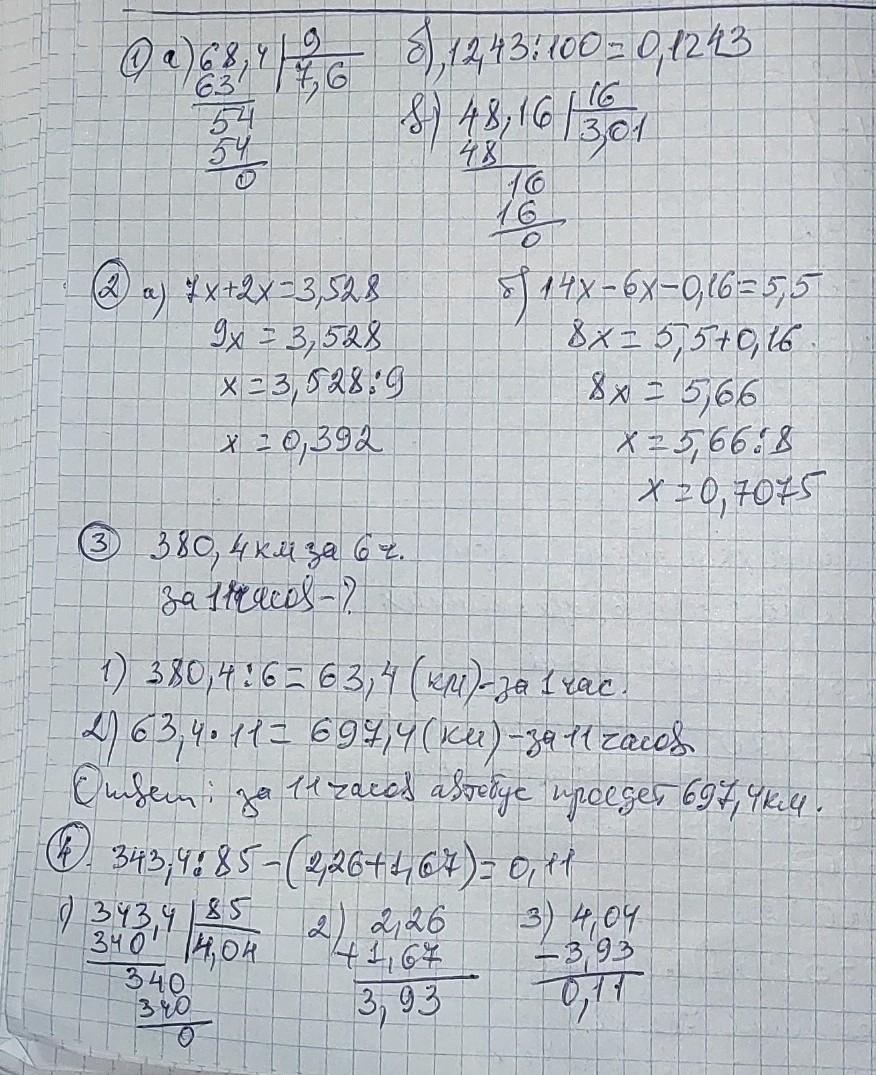 ① а) 68,4 | 9
63 7,6
54
54
0
б) 12,43:100=0,1243
в) 48,16 | 16
48 3,01
16
16
0
② а) 7x+2x=3,528
9x=3,528
x=3,528:9
x=0,392
б) 14x-6x-0,16=5,5
8x=5,5+0,16
8x=5,66
x=5,66:8
x=0,7075
③ 380,4 км за 6 ч.
за 11 часов - ?
1) 380,4:6=63,4 (км)-за 1 час.
2) 63,4·11=697,4 (км)-за 11 часов
Ответ: за 11 часов автобус проедет 697,4 км.
④. 343,4:85-(2,26+1,67)=0,11
1) 343,4 | 85
340 4,04
340
340
0
2) 2,26
+1,67
3,93
3) 4,04
-3,93
0,11